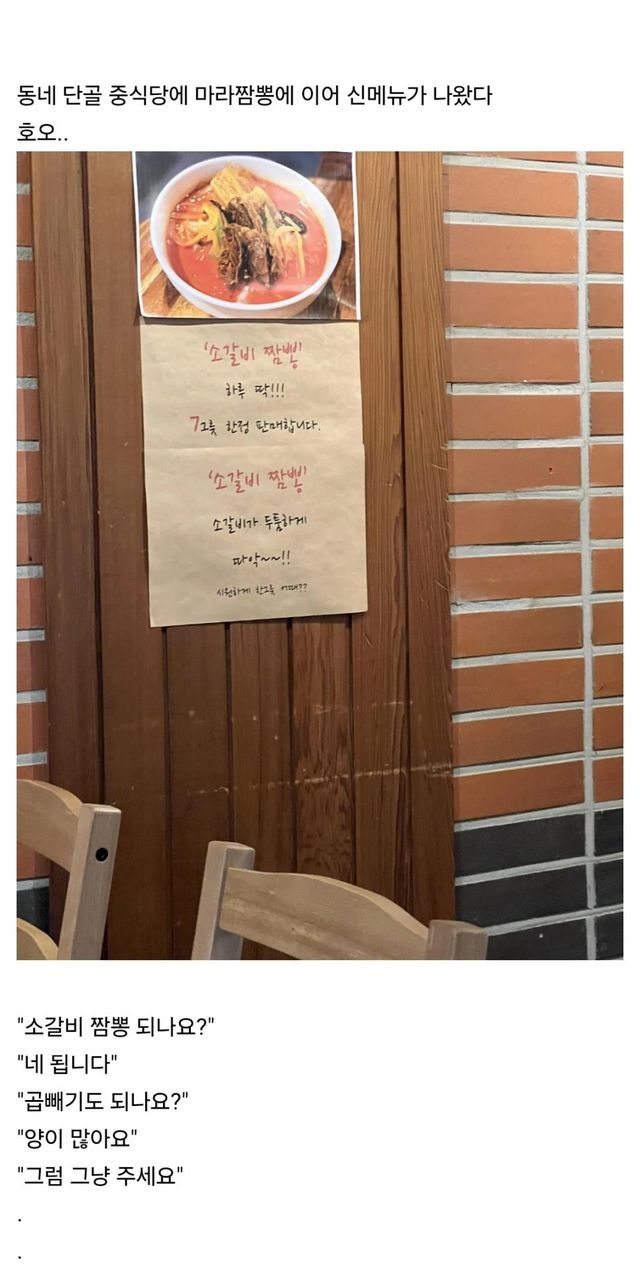 동네 단골 중식당에 마라짬뽕에 이어 신메뉴가 나왔다
호오..
'소갈비 짬뽕'
하루 딱!!!
7그릇 한정 판매합니다.
'소갈비 짬뽕'
소갈비가 두툼하게
따악~~!!
시원하게 한그릇 어때??
"소갈비 짬뽕 되나요?"
"네 됩니다"
"곱빼기도 되나요?"
"양이 많아요"
"그럼 그냥 주세요"
.
.